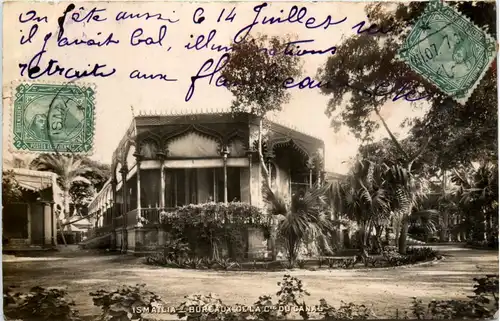 On fête aussi le 14 Juillet
il y avait bal, illuminations
retraite aux flambeaux
POSTES EGYPTIENNES
ISM
ISMAÏLIA - BUREAUX DE LA Cie DU CANAL